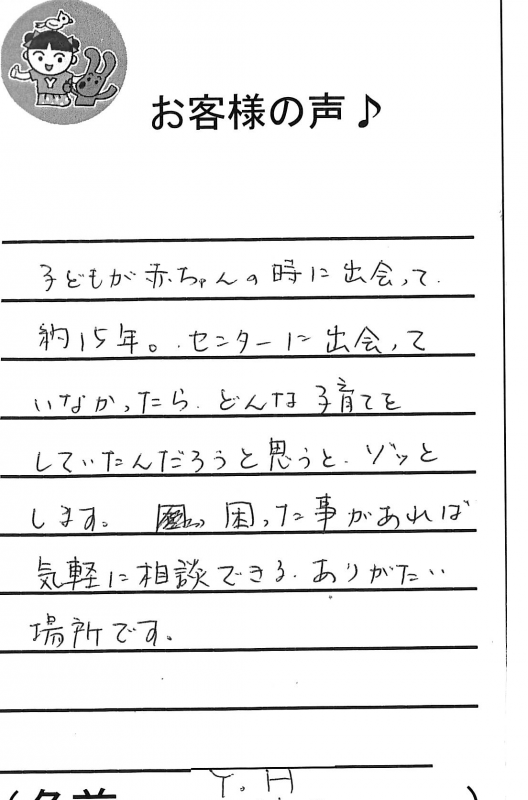 お客様の声♪
子どもが赤ちゃんの時に出会って、
約15年。センターに出会って
いなかったら、どんな子育てを
していたんだろうと思うと、ゾッと
します。困った事があれば
気軽に相談できる、ありがたい
場所です。
Y.H